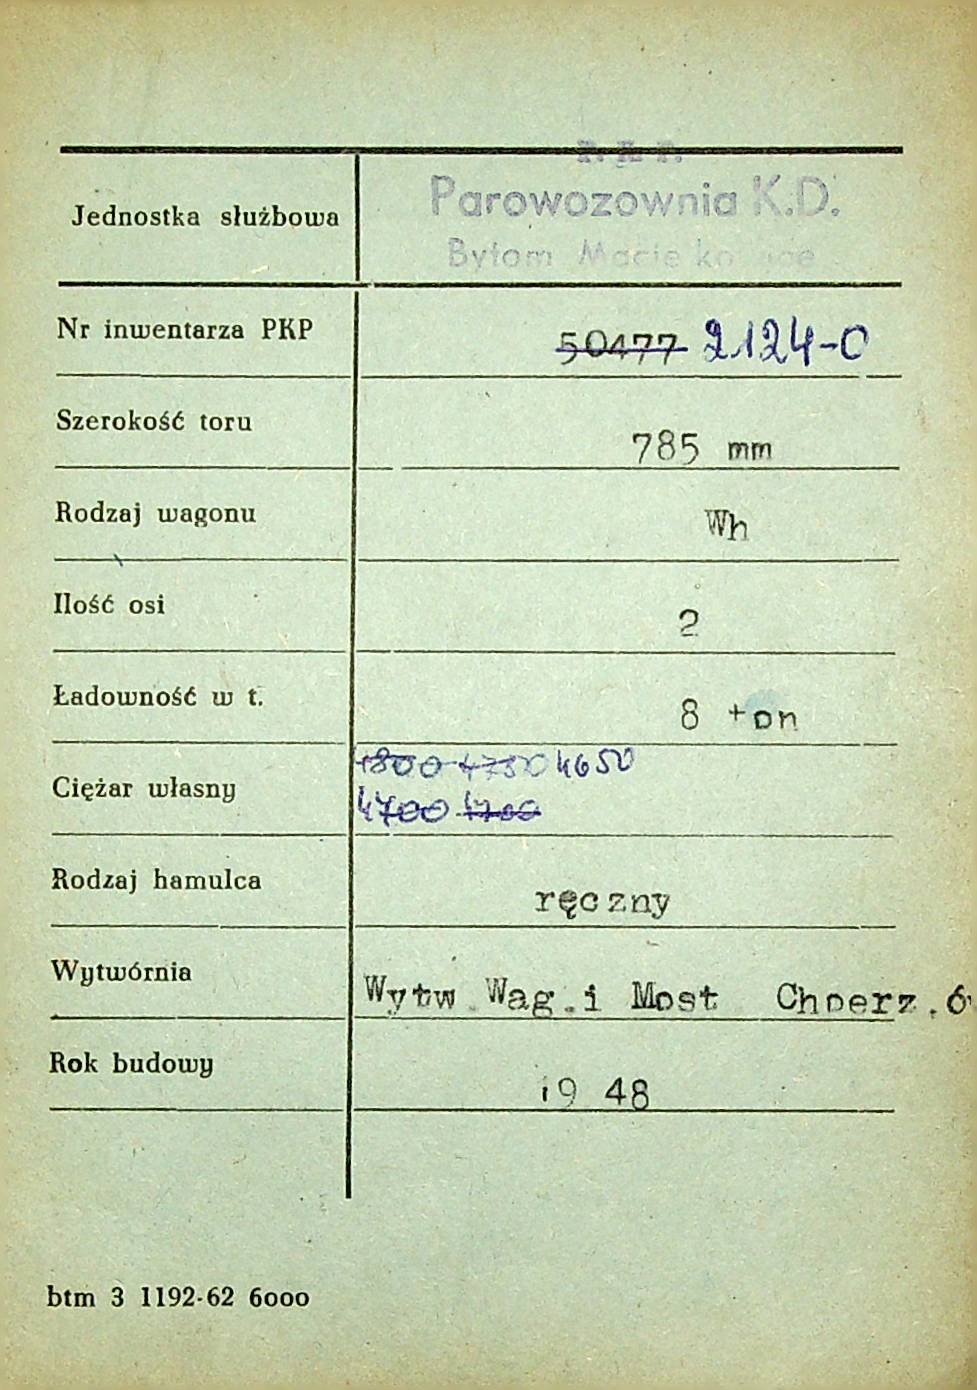 P. K. P.
Jednostka służbowa Parowozownia K.D.
Bytom
Nr inwentarza PKP 50477 2124-0
Szerokość toru 785 mm
Rodzaj wagonu Wh
Ilość osi 2
Ładowność w t. 8 ton
4750 4650
Ciężar własny 4700 4700
Rodzaj hamulca ręczny
Wytwórnia Wytw. Wag.i Most Choerz.ó
Rok budowy 19 48
btm 3 1192-62 6000